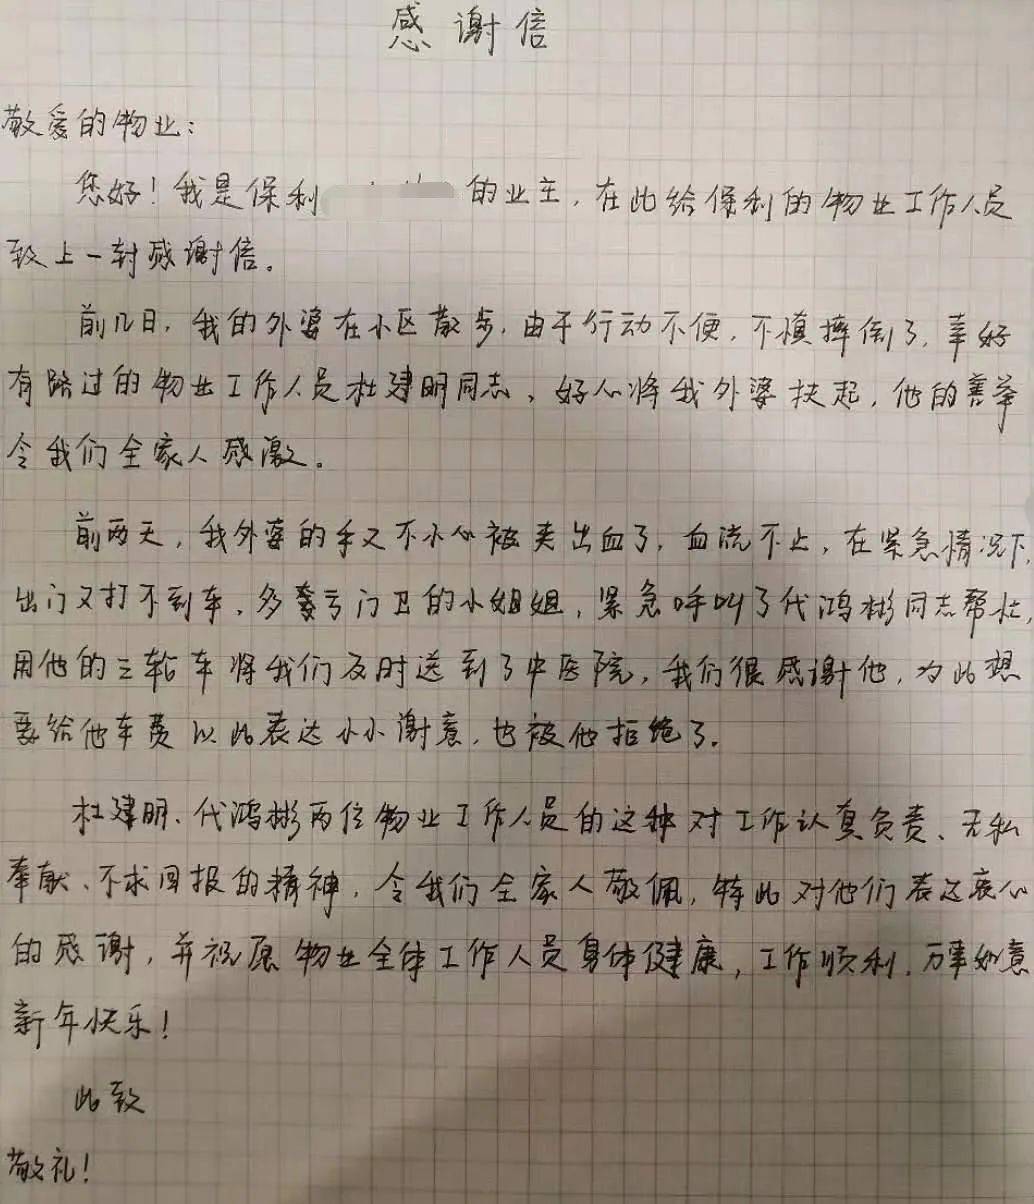 感谢信
敬爱的物业：
您好！我是保利的业主，在此给保利的物业工作人员
致上一封感谢信。
前几日，我的外婆在小区散步，由于行动不便，不慎摔倒了，幸好
有路过的物业工作人员杜建明同志，好心将我外婆扶起，他的善举
令我们全家人感激。
前两天，我外婆的手又不小心被夹出血了，血流不止，在紧急情况下，
出门又打不到车，多亏门卫的小姐姐，紧急呼叫了代鸿彬同志帮忙，
用他的三轮车将我们及时送到了中医院，我们很感谢他，为此想
要给他车费以此表达小小谢意，也被他拒绝了。
杜建明、代鸿彬两位物业工作人员的这种对工作认真负责、无私
奉献、不求回报的精神，令我们全家人敬佩，特此对他们表达衷心
的感谢，并祝愿物业全体工作人员身体健康，工作顺利，万事如意
新年快乐！
此致
敬礼！